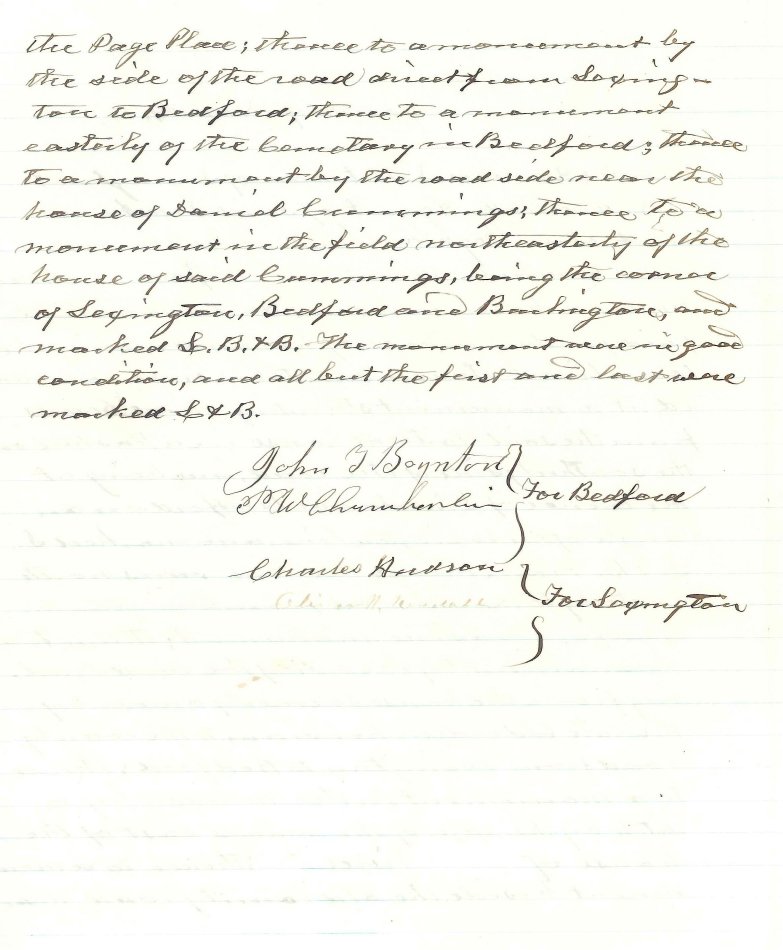 the Page Place; thence to a monument by
the side of the road direct from Lexing-
ton to Bedford; thence to a monument
easterly of the Cemetary in Bedford; thence
to a monument by the road side near the
house of Daniel Cummings; thence to a
monument in the field northeasterly of the
house of said Cummings, being the corner
of Lexington, Bedford and Burlington, and
marked L. B. & B. The monument were in good
condition, and all but the first and last were
marked L & B.
John T Boynton
W Chamberlin
For Bedford
Charles Hudson
For Lexington